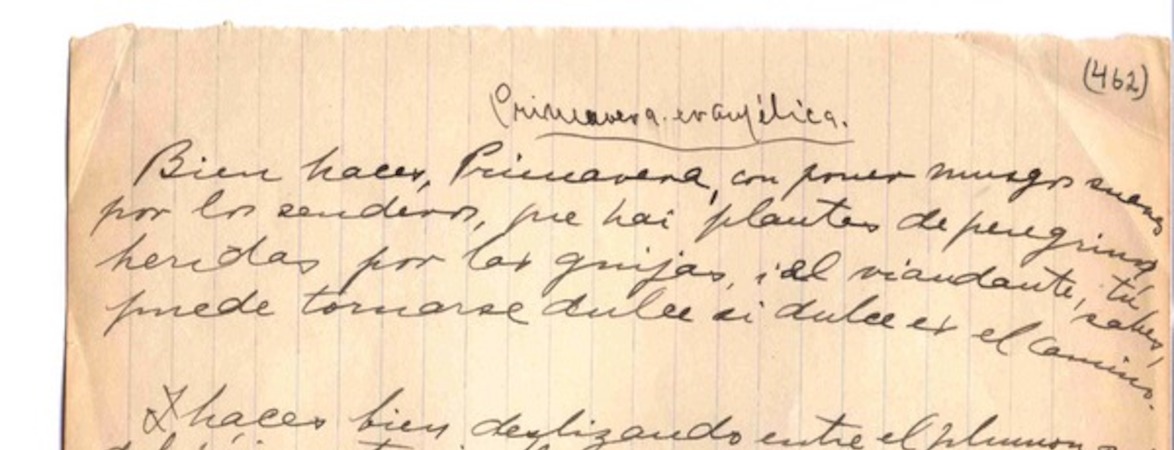 (462)
Primavera evanjélica.
Bien haces, Primavera, con poner musgos suaves
por los senderos, que hai plantas de peregrinos
heridas por las guijas, i el viandante, tú sabes,
puede tornarse dulce si dulce es el camino.
I haces bien deslizando entre el plumon